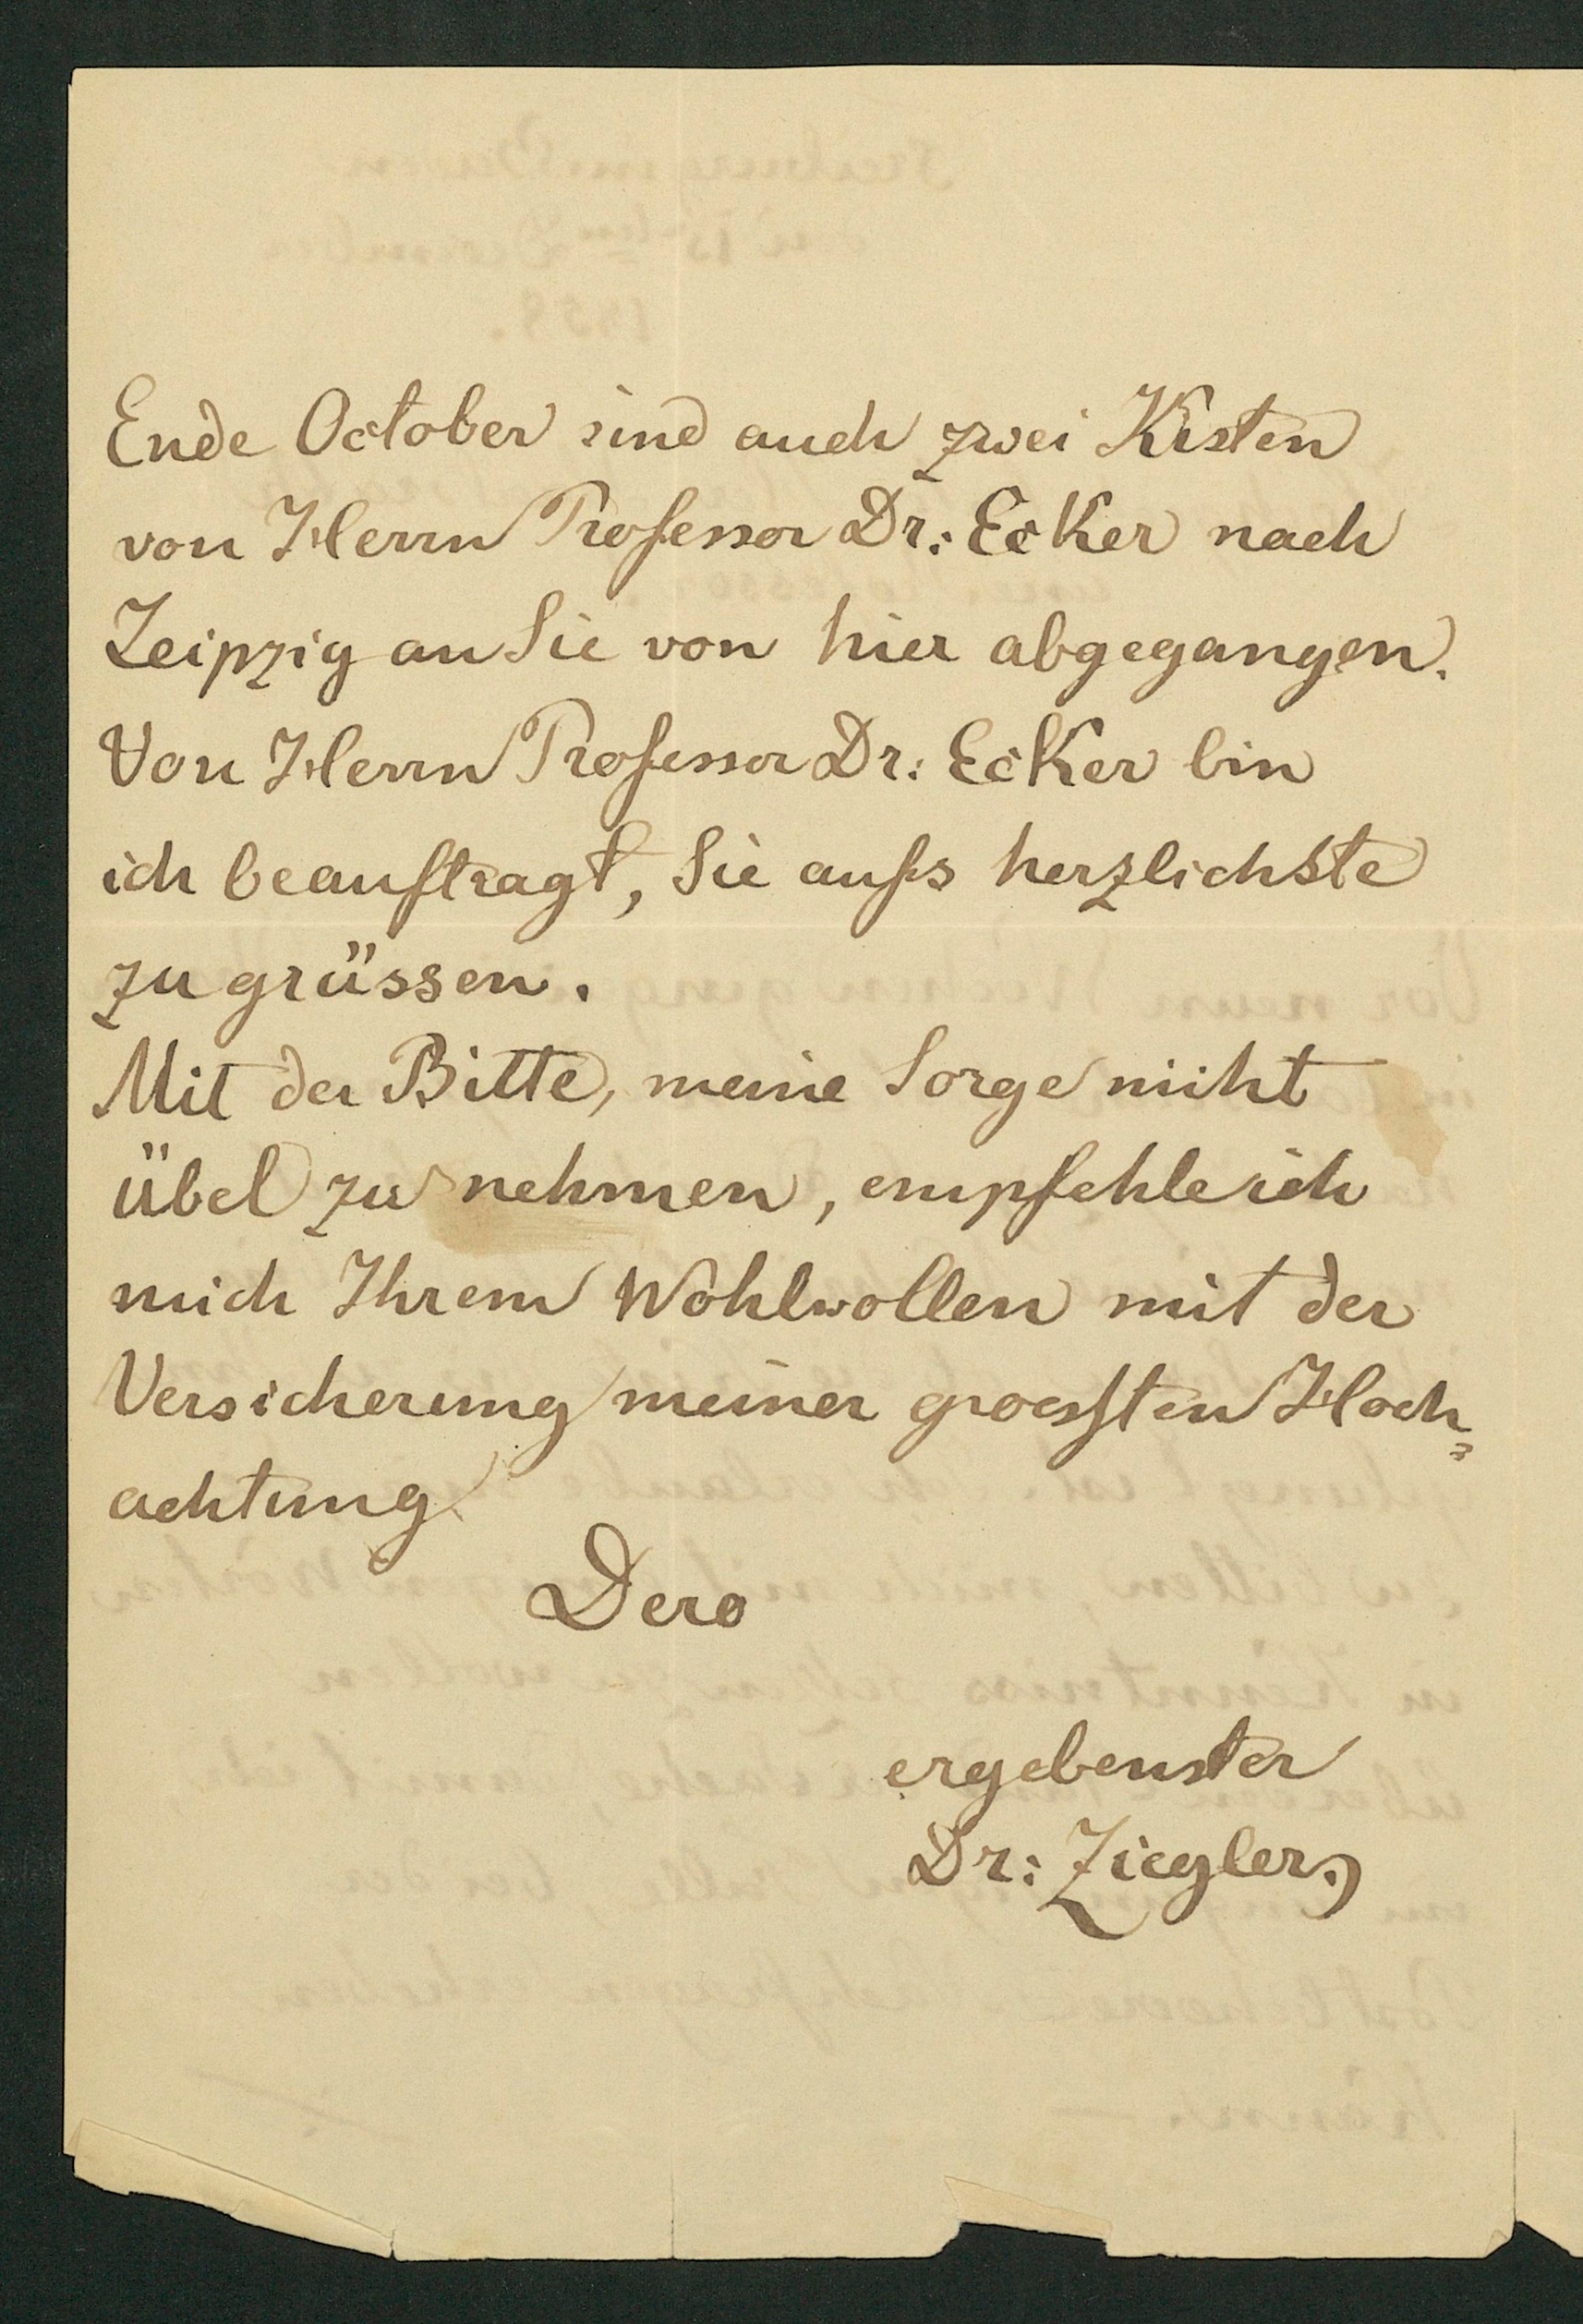 Ende October sind auch zwei Kisten
von Herrn Professor Dr: Ecker nach
Leipzig an Sie von hier abgegangen.
Von Herrn Professor Dr: Ecker bin
ich beauftragt, Sie aufs herzlichste
zu grüssen.
Mit der Bitte, meine Sorge nicht
übel zu nehmen, empfehle ich
mich Ihrem Wohlwollen mit der
Versicherung meiner groessten Hoch=
achtung
Dero
ergebenster
Dr: Ziegler.